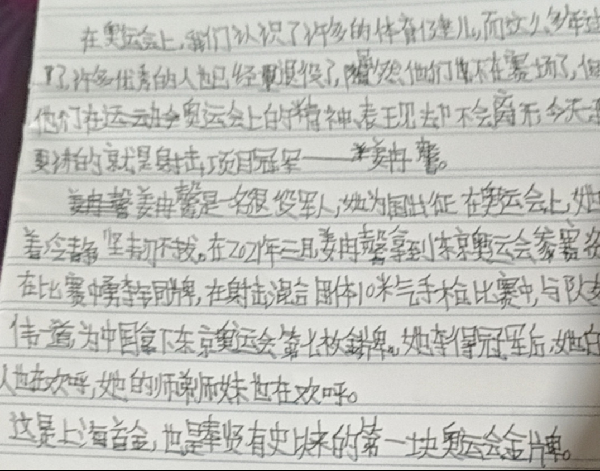 在奥运会上,我们认识了许多的体育健儿,而这么多年过
了,许多优秀的人也已经退役了,虽然他们不在赛场了,但
他们在运动会奥运会上的精神表现却不会离开今天
要讲的就是射击项目冠军——姜冉馨。
姜冉馨是一名现役军人,她为国出征在奥运会上,她
着冷静坚韧不拔。在2021年三月姜冉馨拿到东京奥运会参赛资
在比赛中勇夺铜牌,在射击混合团体10米气手枪比赛中,与队友
伟一道,为中国拿下东京奥运会第七枚金牌。她夺得冠军后,她的
人也在欢呼,她的师弟师妹也在欢呼。
这是上海首金,也是奉贤有史以来的第一块奥运会金牌。